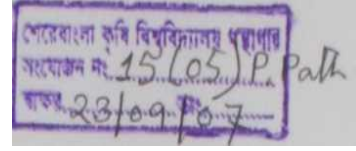 শেরেবাংলা কৃষি বিশ্ববিদ্যালয় গ্রন্থাগার
সংযোজন নং 15(05) P. Path
তারিখ 23/09/07